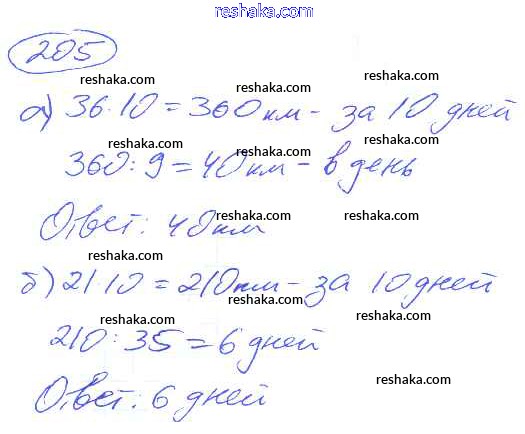 reshaka.com
205
reshaka.com reshaka.com
а) 36·10 = 360 км - за 10 дней
reshaka.com reshaka.com
360 : 9 = 40 км - в день
reshaka.com reshaka.com
Ответ: 40 км
reshaka.com reshaka.com
б) 21·10 = 210 км - за 10 дней
reshaka.com reshaka.com
210 : 35 = 6 дней
reshaka.com reshaka.com
Ответ: 6 дней